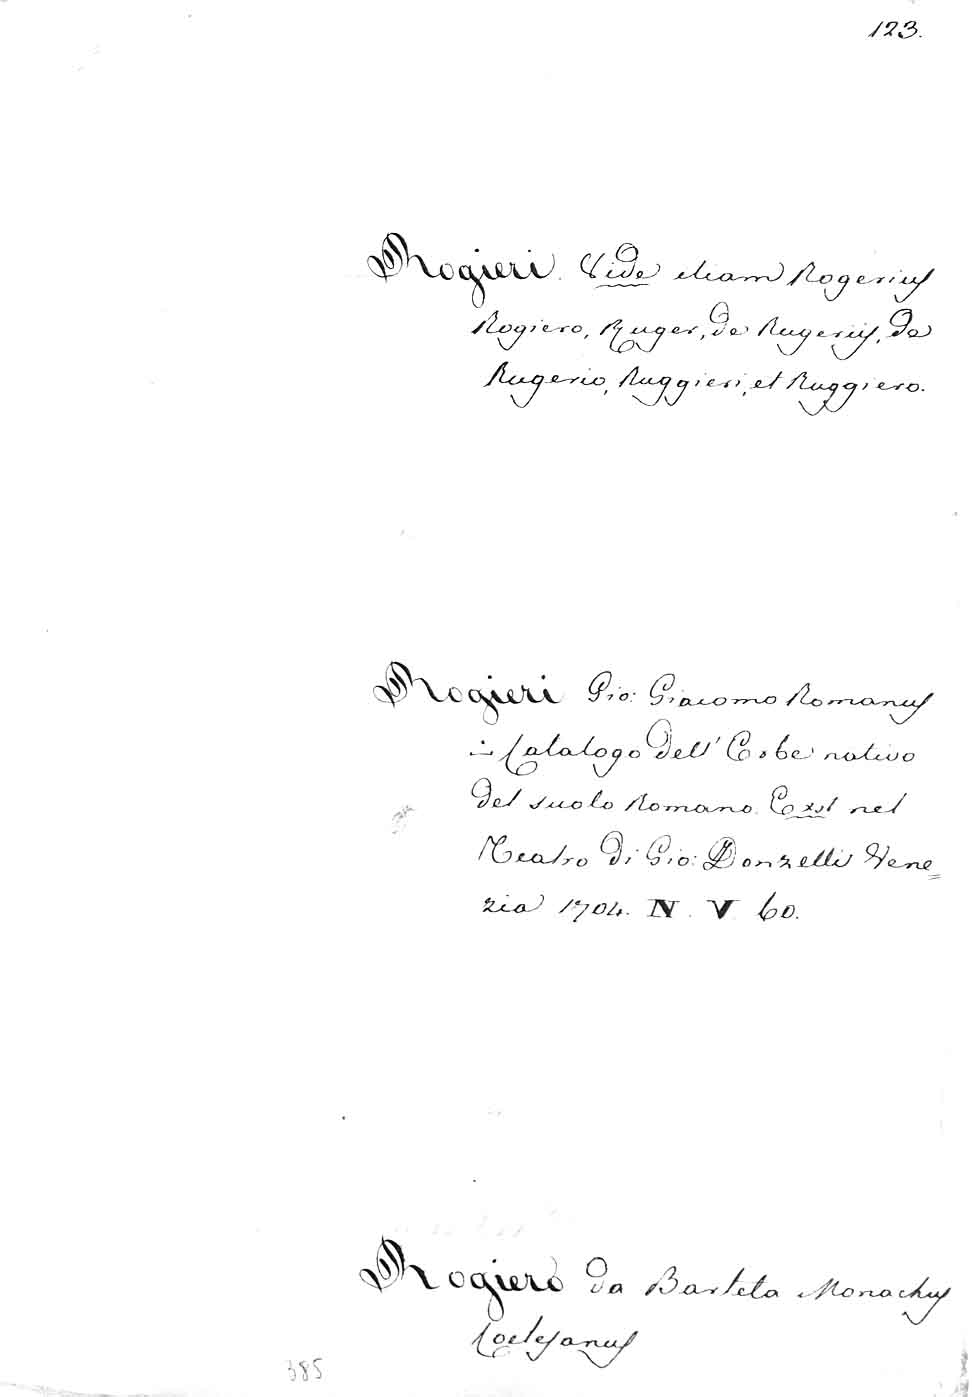 123.
Rogieri. Vide etiam Rogerius
Rogiero, Ruger, de Rugeriis, da
Rugerio, Ruggieri, et Ruggiero.
Rogieri Gio: Giacomo Romanus
Catalogo dell' Erbe nativo
del suolo Romano. Exst nel
Teatro di Gio: Donzelli Vene=
zia 1704. N. V. 60.
Rogiero da Barleta Monachus
385